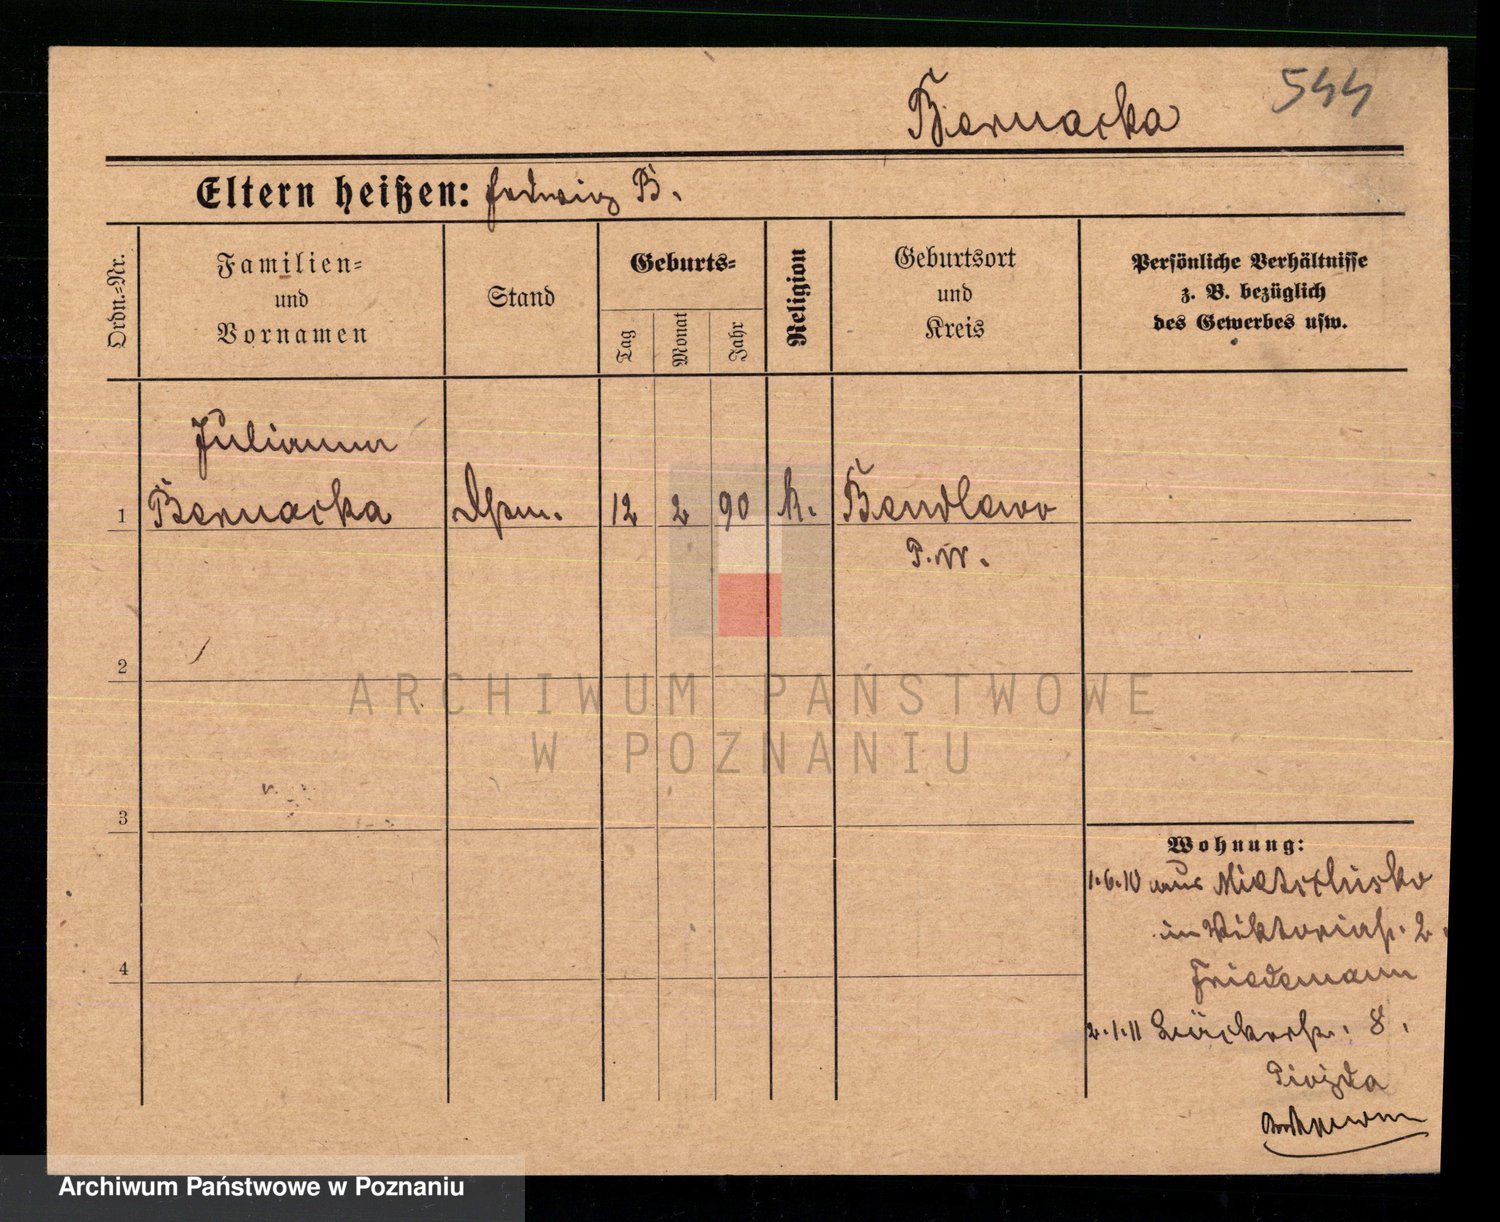 Bernacka 544
Eltern heißen: Hedwig B.
Ordn.=Nr.
Familien=
und
Vornamen
Stand
Geburts=
Tag
Monat
Jahr
Religion
Geburtsort
und
Kreis
Persönliche Verhältnisse
z. B. bezüglich
des Gewerbes usw.
Julianna
1 Bernacka 12 2 90 k. Bendlewo
P. W.
2
3
4
Wohnung:
1.6.10 aus
in Viktoriastr. 2.
Friedemann
2.1.11 Bäckerstr. 8.
ARCHIWUM PAŃSTWOWE
W POZNANIU
Archiwum Państwowe w Poznaniu